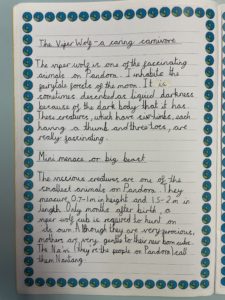 The Viper Wolf - a caring carnivore
The viper wolf is one of the fascinating
animals on Pandora. I inhabits the
fairytale forests of the moon. It is
sometimes described as liquid darkness
because of the dark body that it has.
These creatures, which have six limbs, each
having a thumb and three toes, are
really fascinating.
Mini menace or big beast
The vicious creatures are one of the
smallest animals on Pandora. They
measure 0.7-1m in height and 1.5-2m in
length. Only months after birth, a
viper wolf cub is required to hunt on
its own. Although they are very ferocious,
mothers are very gentle to their new born cubs.
The Na'vi (they're the people on Pandora) call
them Nantang.